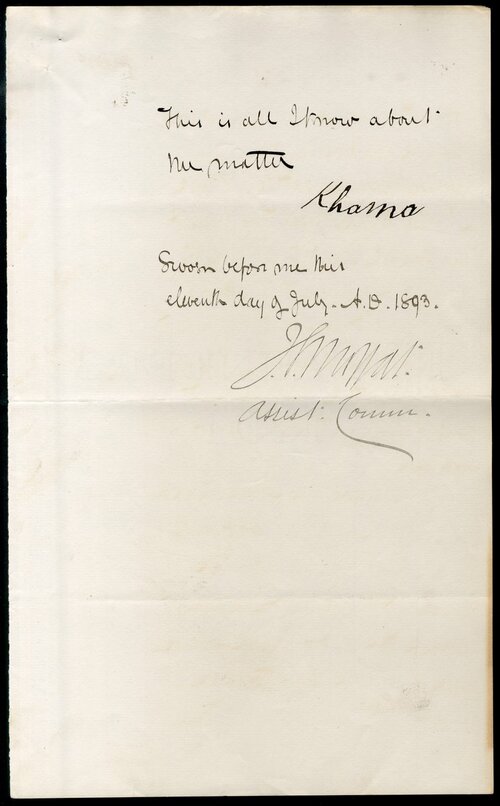 This is all I know about
the matter
Khama
Sworn before me this
eleventh day of July. A.D. 1893.
J. S. Moffat.
Assist. Comm.